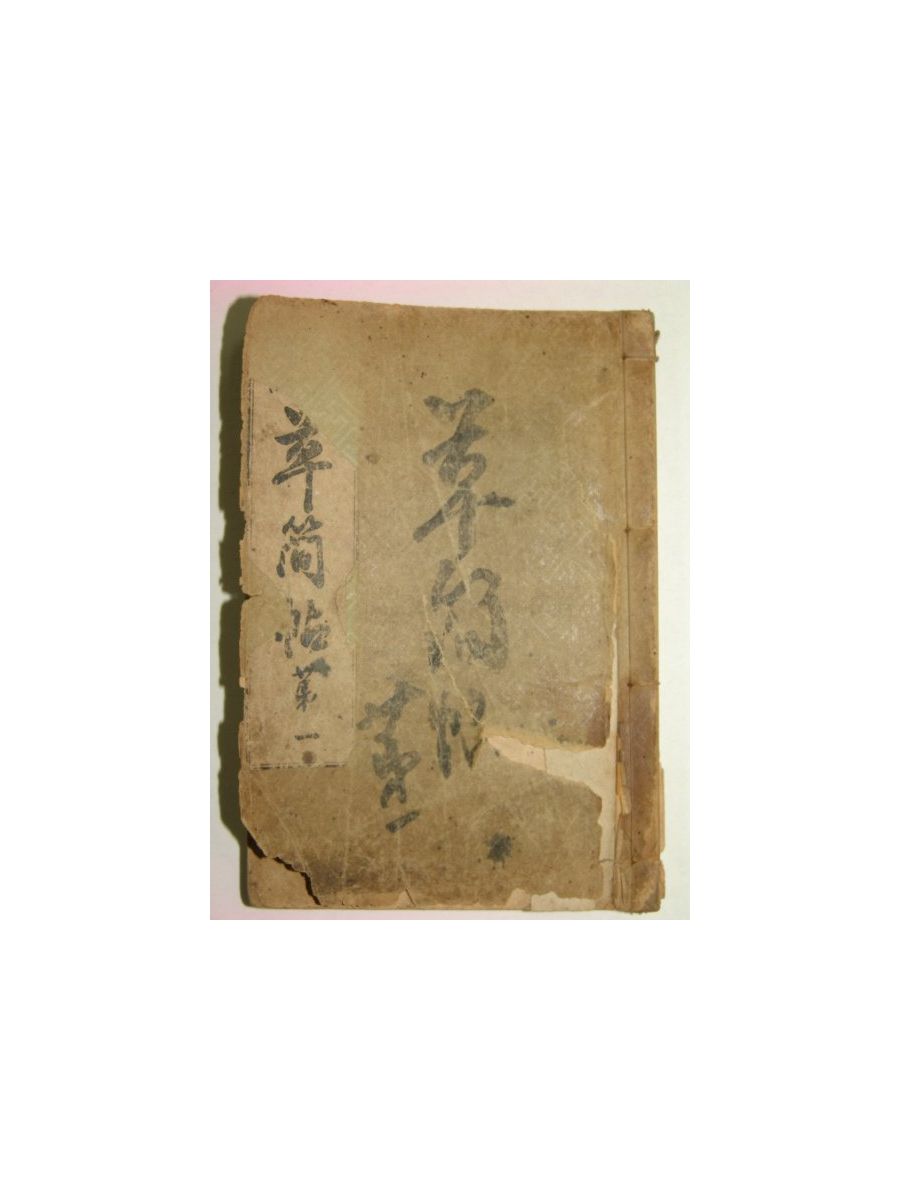 草簡帖
共一
草簡帖第一